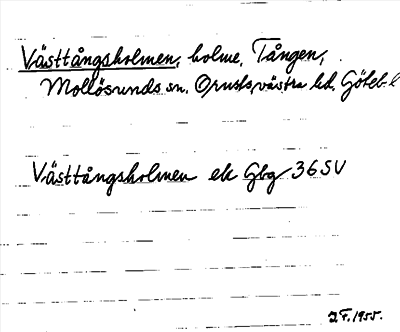 Västtångsholmen, holme, Tången,
Mollösunds sn. Orusts västra hd. Göteb. l
Västtångsholmen ek Gbg 36 SV
1955.